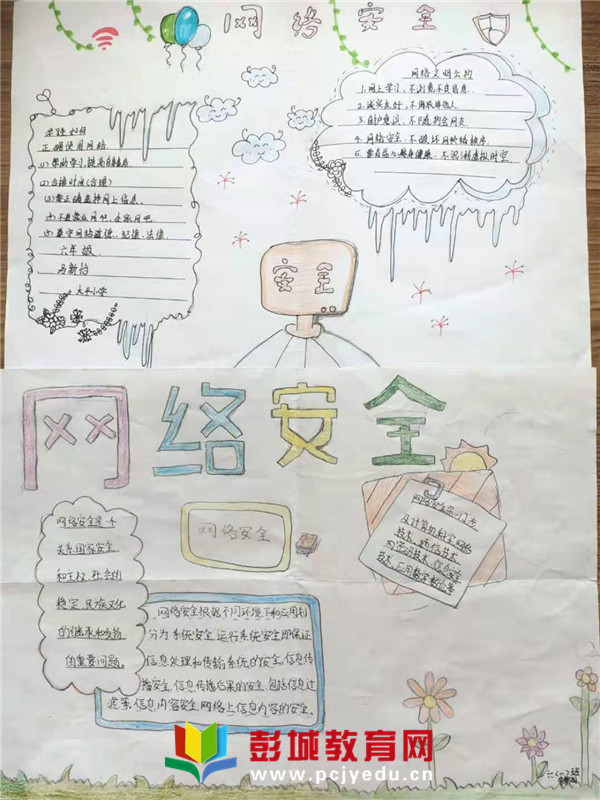 网络安全
网络文明公约
1.网上学习,不浏览不良信息.
2.诚实友好,不侮欺诈他人
3.自护意识,不随约会网友
4.网络安全,不破坏网络秩序.
5.要有益心身健康,不沉溺虚拟时空.
正确使用网络
(2)合理时间(合理)
(3)要正确选择网上信息.
六年级
太平小学
安全
网络安全
网络安全是一个
关系国家安全
和主权,社会的
稳定,民族文化
的继承和发扬
的重要问题。
网络安全
网络安全是一门涉
及计算机科学,网络
技术,通信技术,
密码技术,信息安全
技术,应用数学,数论等
网络安全根据不同环境下和应用划
分为系统安全,运行系统安全即保证
信息处理和传输系统的安全,信息传
播安全,信息传播后果的安全,包括信息过
滤等,信息内容安全,网络上信息内容的安全。
彭城教育网
www.pcjyedu.cn